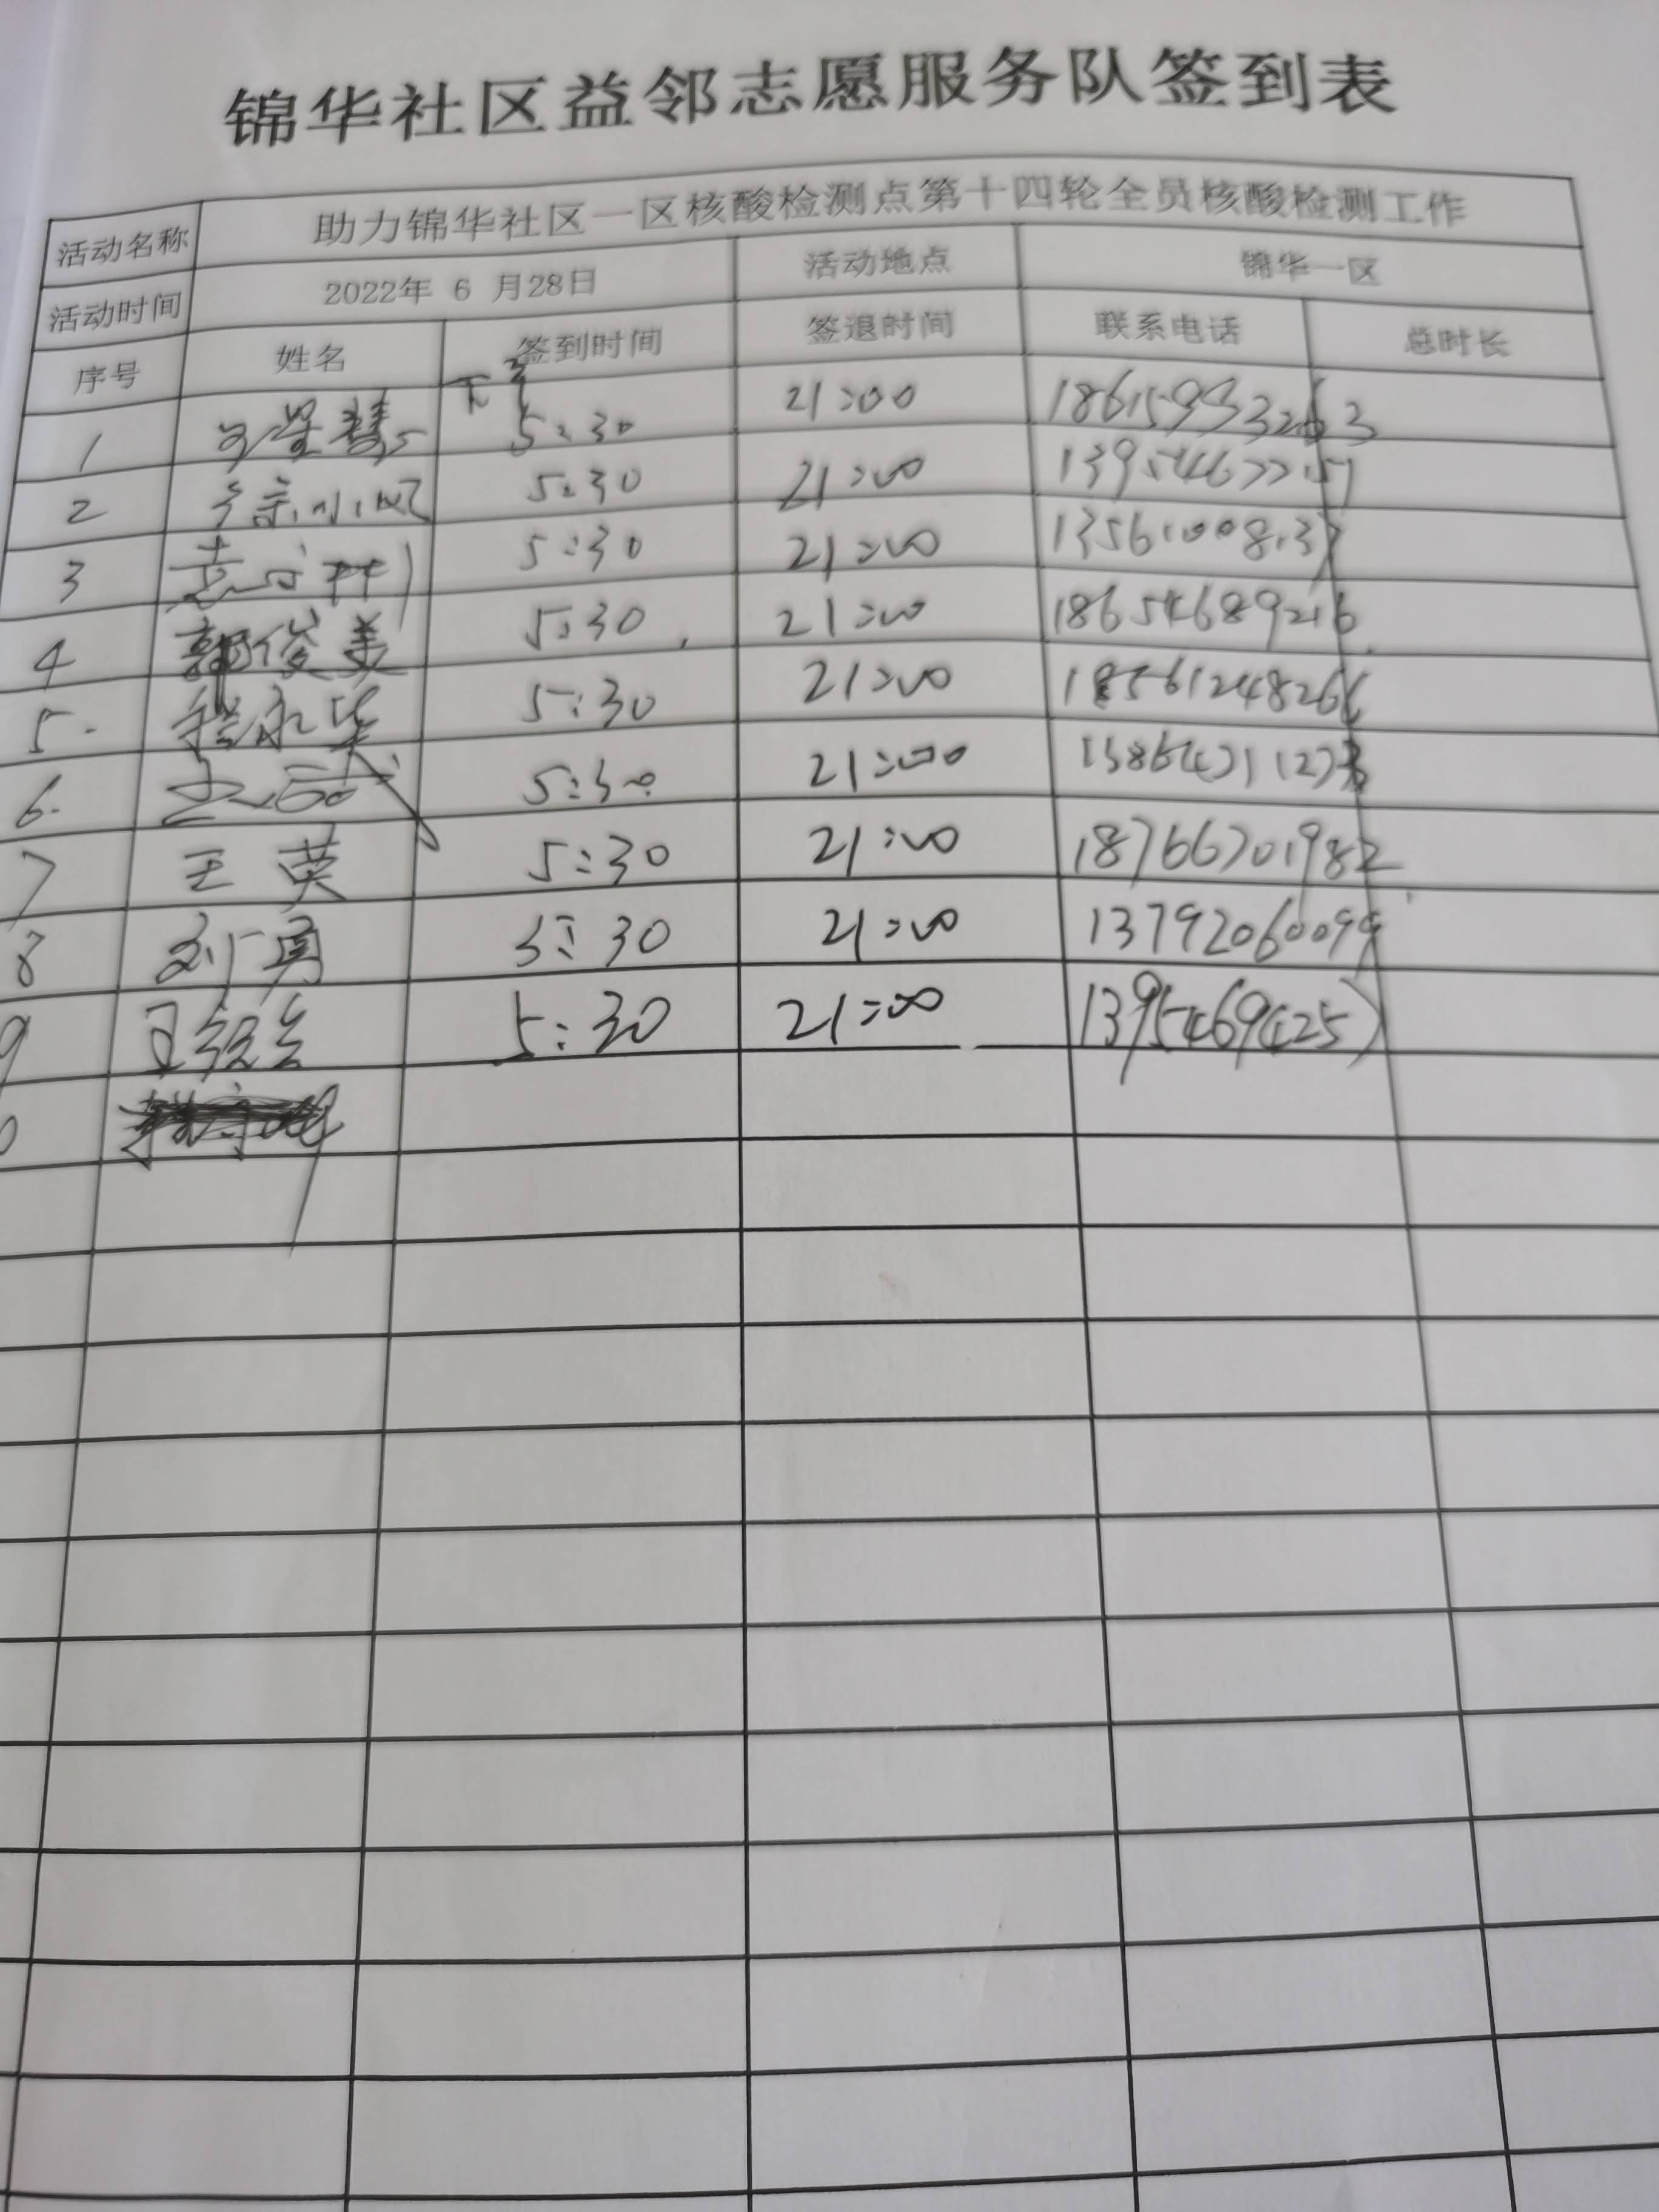 锦华社区益邻志愿服务队签到表
活动名称 助力锦华社区一区核酸检测点第十四轮全员核酸检测工作
活动时间 2022年 6 月28日 活动地点 锦华一区
序号 姓名 签到时间 签退时间 联系电话 总时长
1 下午 5:30 21:00
2 5:30 21:00
3 5:30 21:00
4 郭俊美 5:30 21:00 18654689216
5. 程永华 5:30 21:00 18561248266
6. 5:30 21:00
7 王英 5:30 21:00 18766701982
8 刘勇 5:30 21:00 13792060099
9 5:30 21:00 13954694257